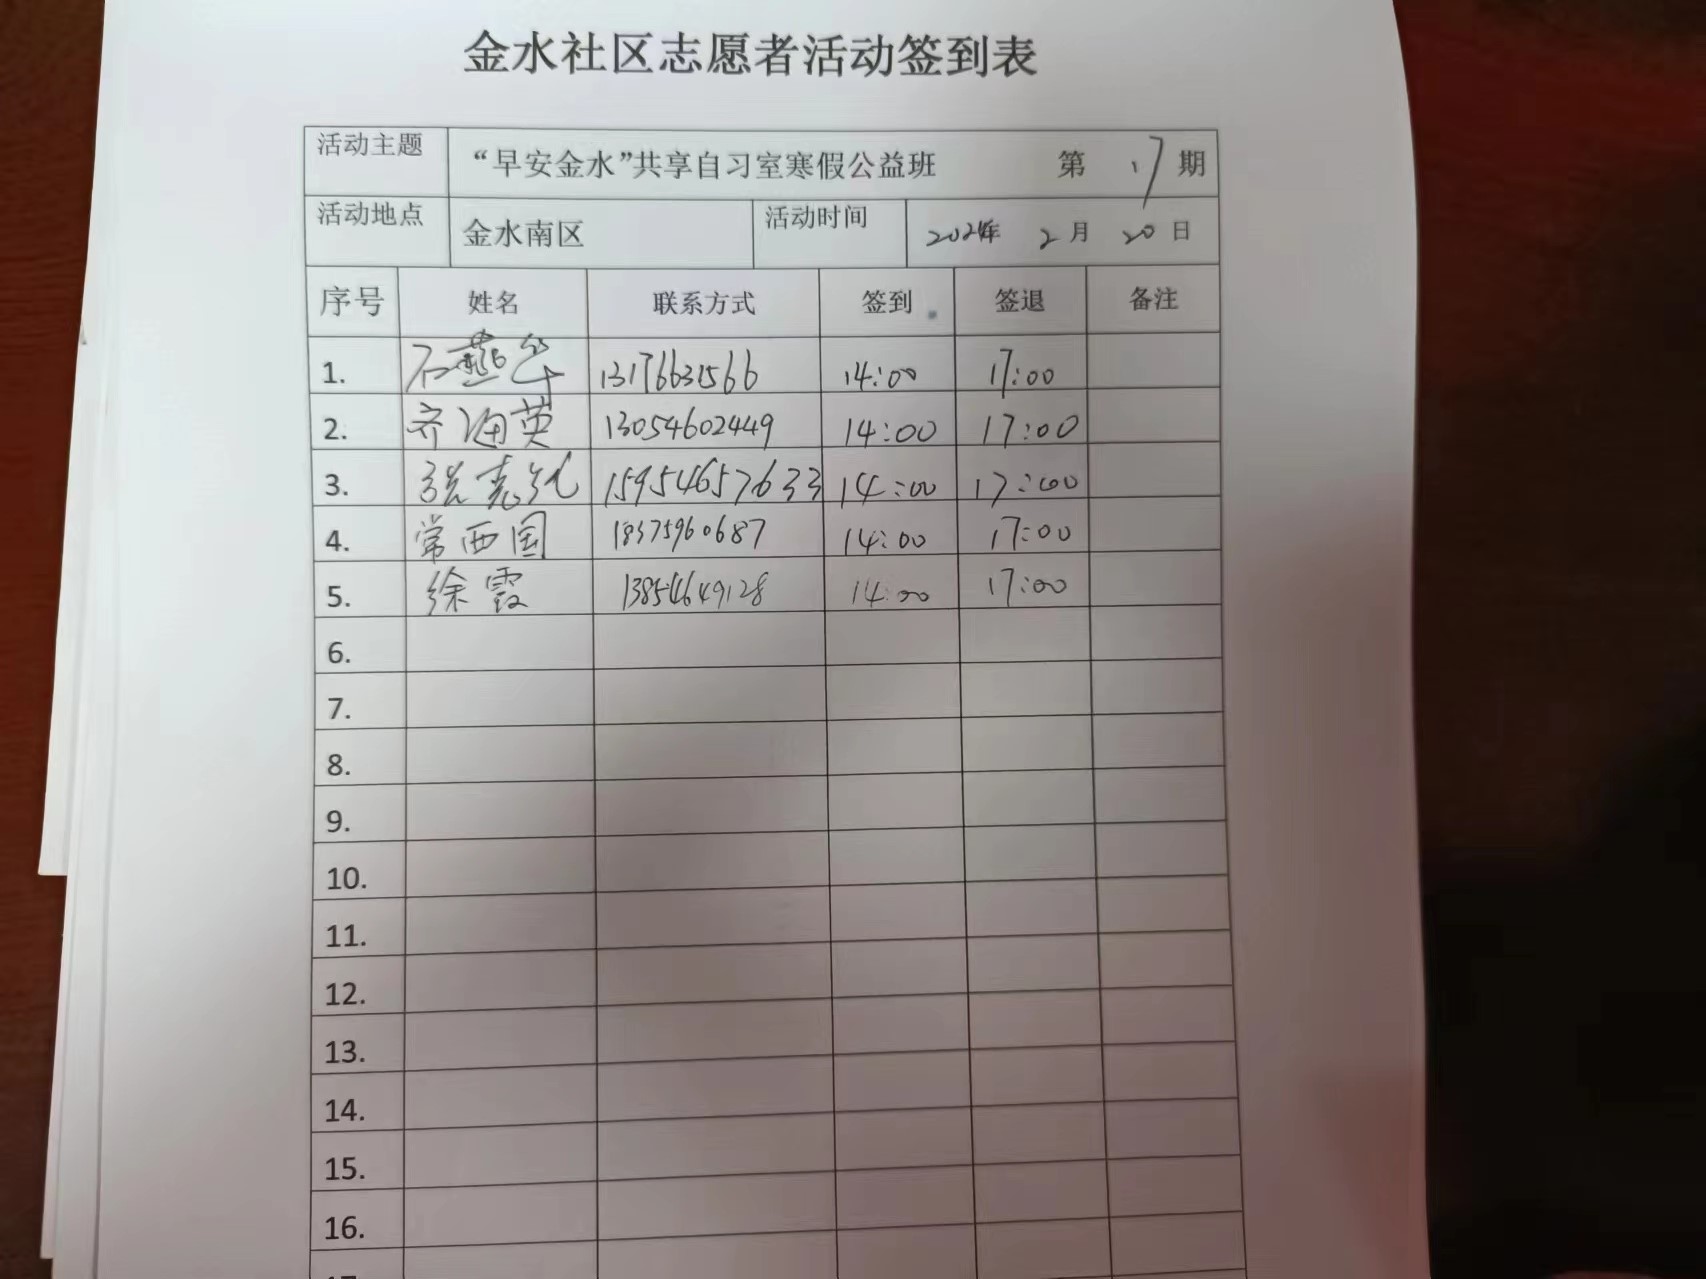 金水社区志愿者活动签到表
活动主题 “早安金水”共享自习室寒假公益班 第 17 期
活动地点 金水南区 活动时间 2024年 2月 20日
序号 姓名 联系方式 签到 签退 备注
1. 石燕华 13176631566 14:00 17:00
2. 齐海英 13054602449 14:00 17:00
3. 15954657633 14:00 17:00
4. 常西国 18375960687 14:00 17:00
5. 徐霞 13854649128 14:00 17:00
6.
7.
8.
9.
10.
11.
12.
13.
14.
15.
16.